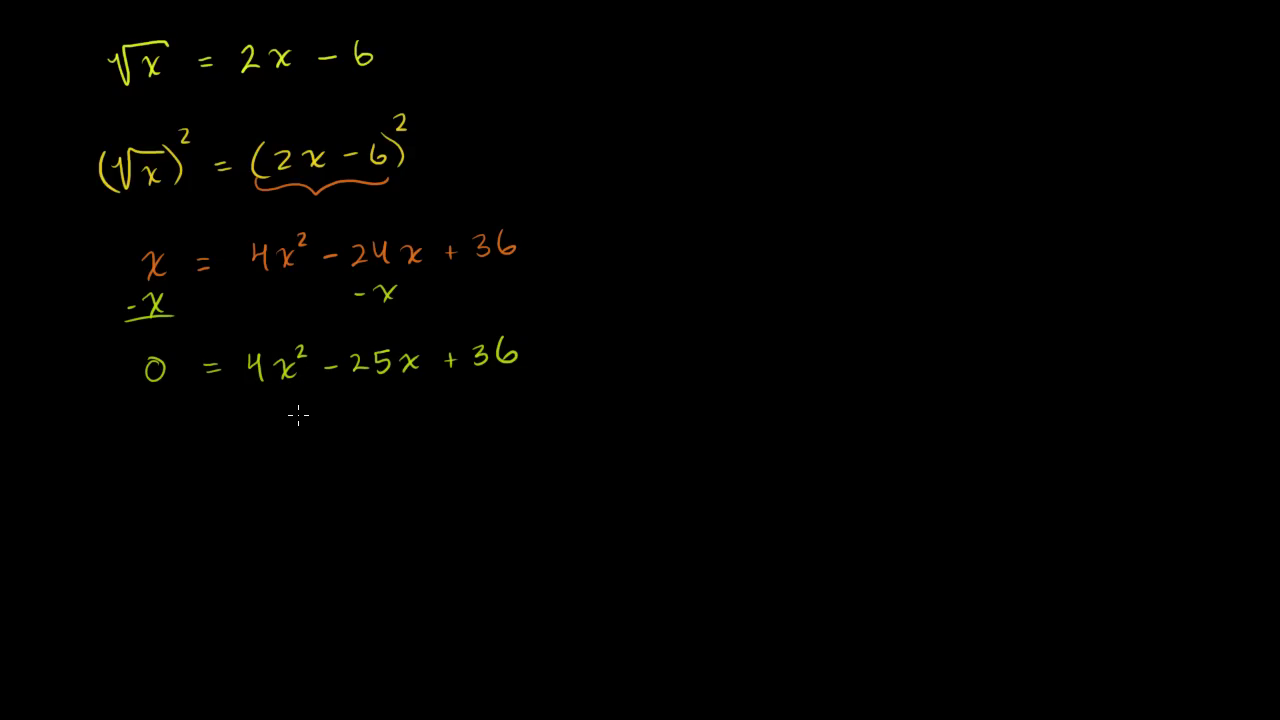 √x = 2x - 6
(√x)² = (2x - 6)²
x = 4x² - 24x + 36
-x - x
0 = 4x² - 25x + 36